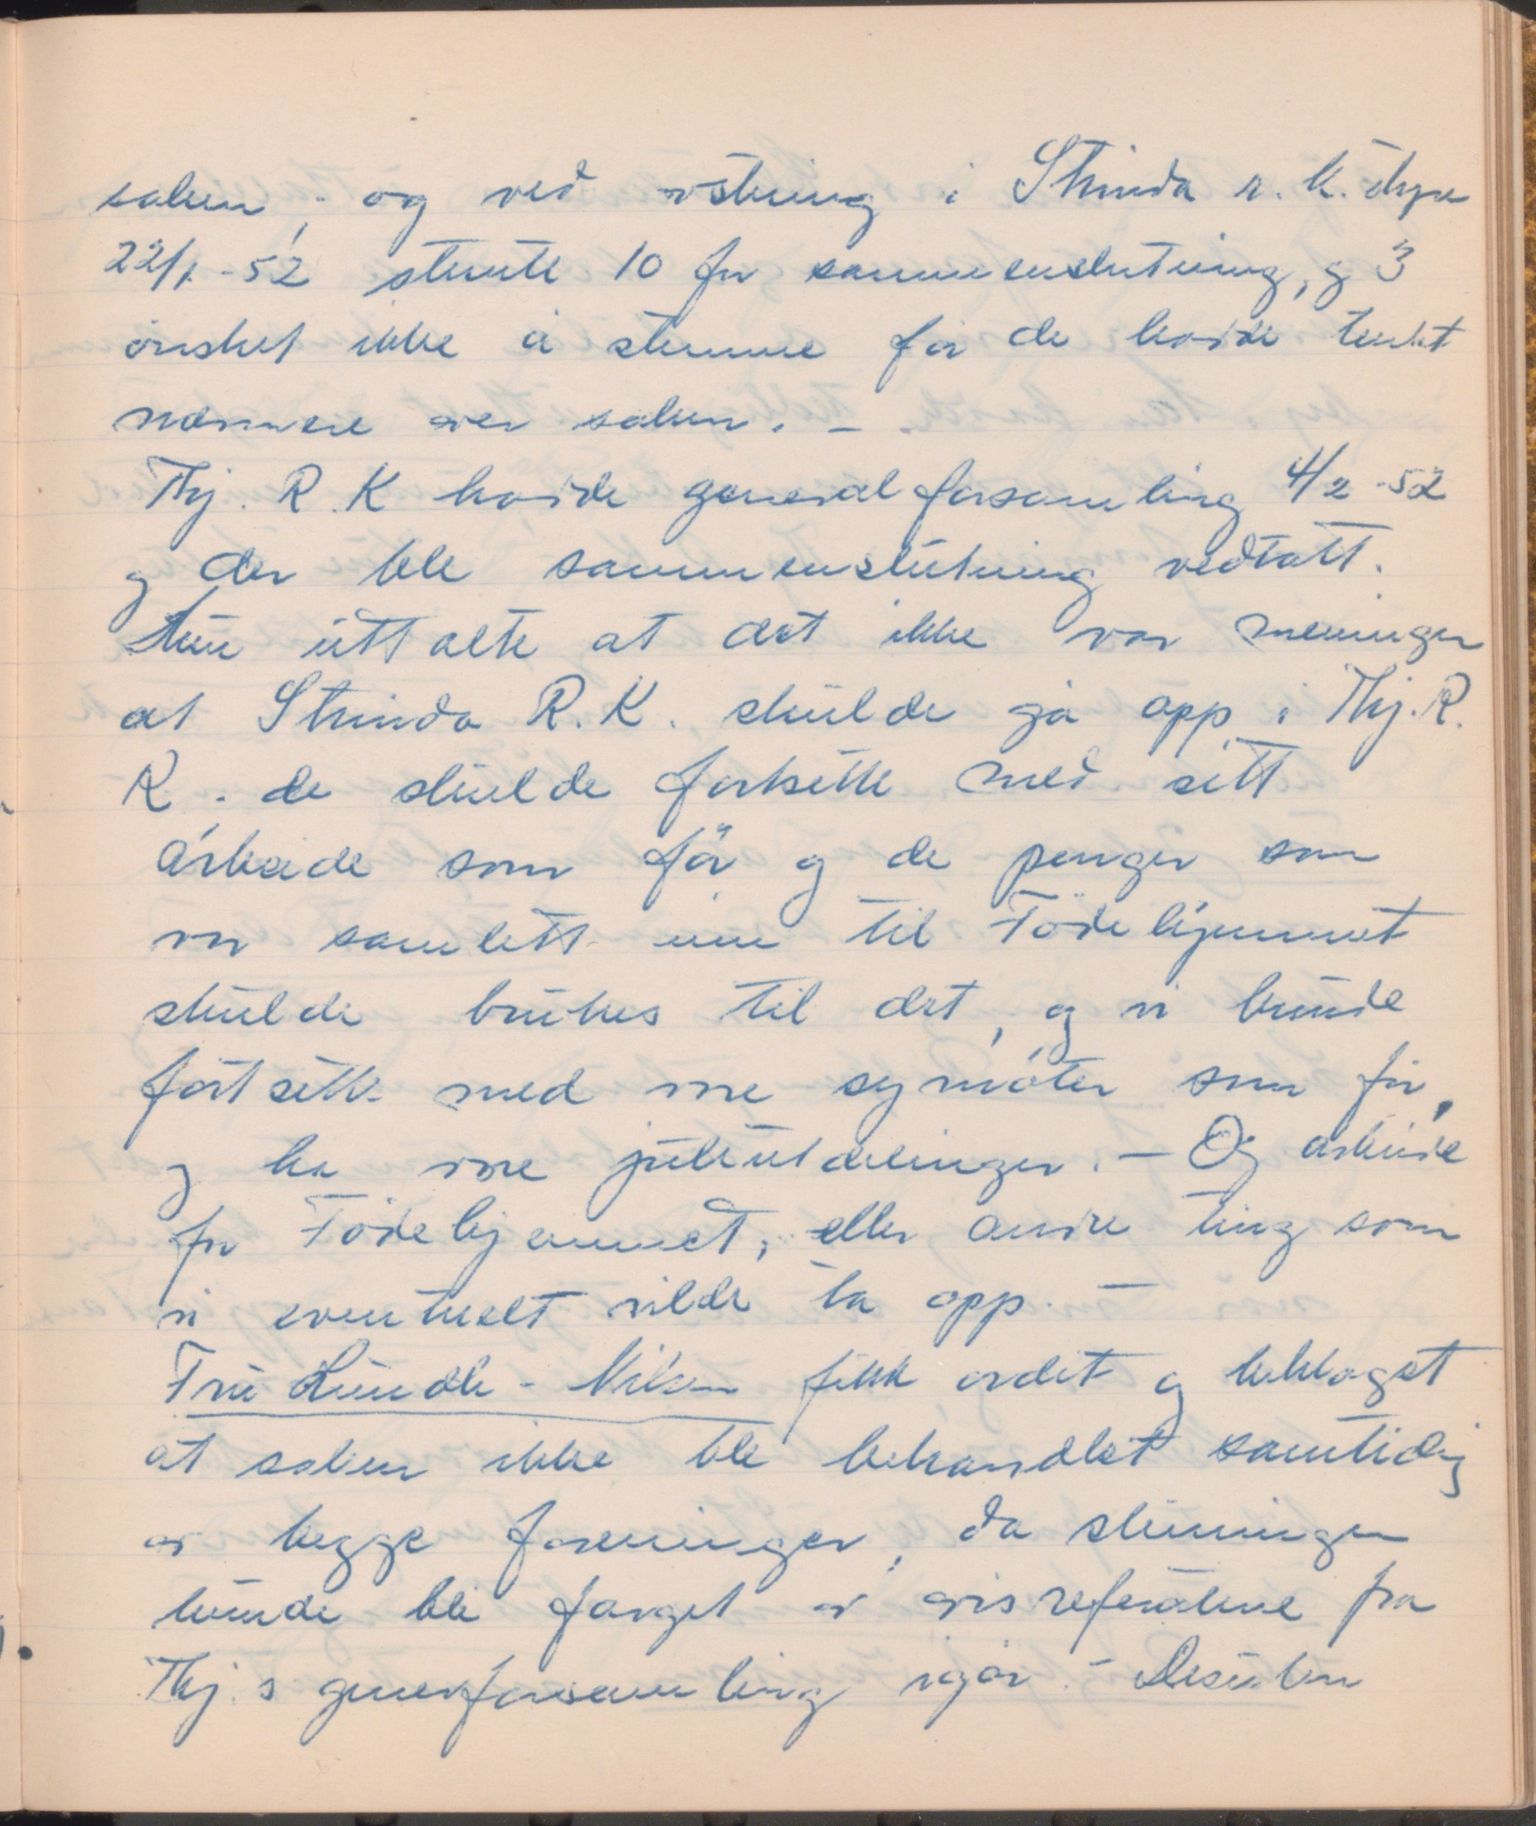 saken, og ved votering i Strinda R. K. styre
22/1-52 stemte 10 for sammenslutning, og 3
ønsket ikke å stemme før de havde tenkt
nærmere over saken. -
Thj. R. K havde generalforsamling 4/2-52
og der ble sammenslutning vedtatt.
Hun uttalte at det ikke var meningen
at Strinda R. K. skulde gå opp i Thj. R.
K. de skulde fortsette med sitt
arbeide som før og de penger som
var samlett inn til Fødehjemmet
skulde brukes til det, og vi kunde
fortsette med våre symøter som før,
og ha våre juleutdelinger. - Og arbeide
for Fødehjemmet, eller andre ting som
vi eventuelt vilde ta opp. -
Fru Lunde-Nilsen fikk ordet og beklaget
at saken ikke ble behandlet samtidig
av begge foreninger, da stemningen
kunde bli farget av avisreferatene fra
Thj.s generforsamling igår. -